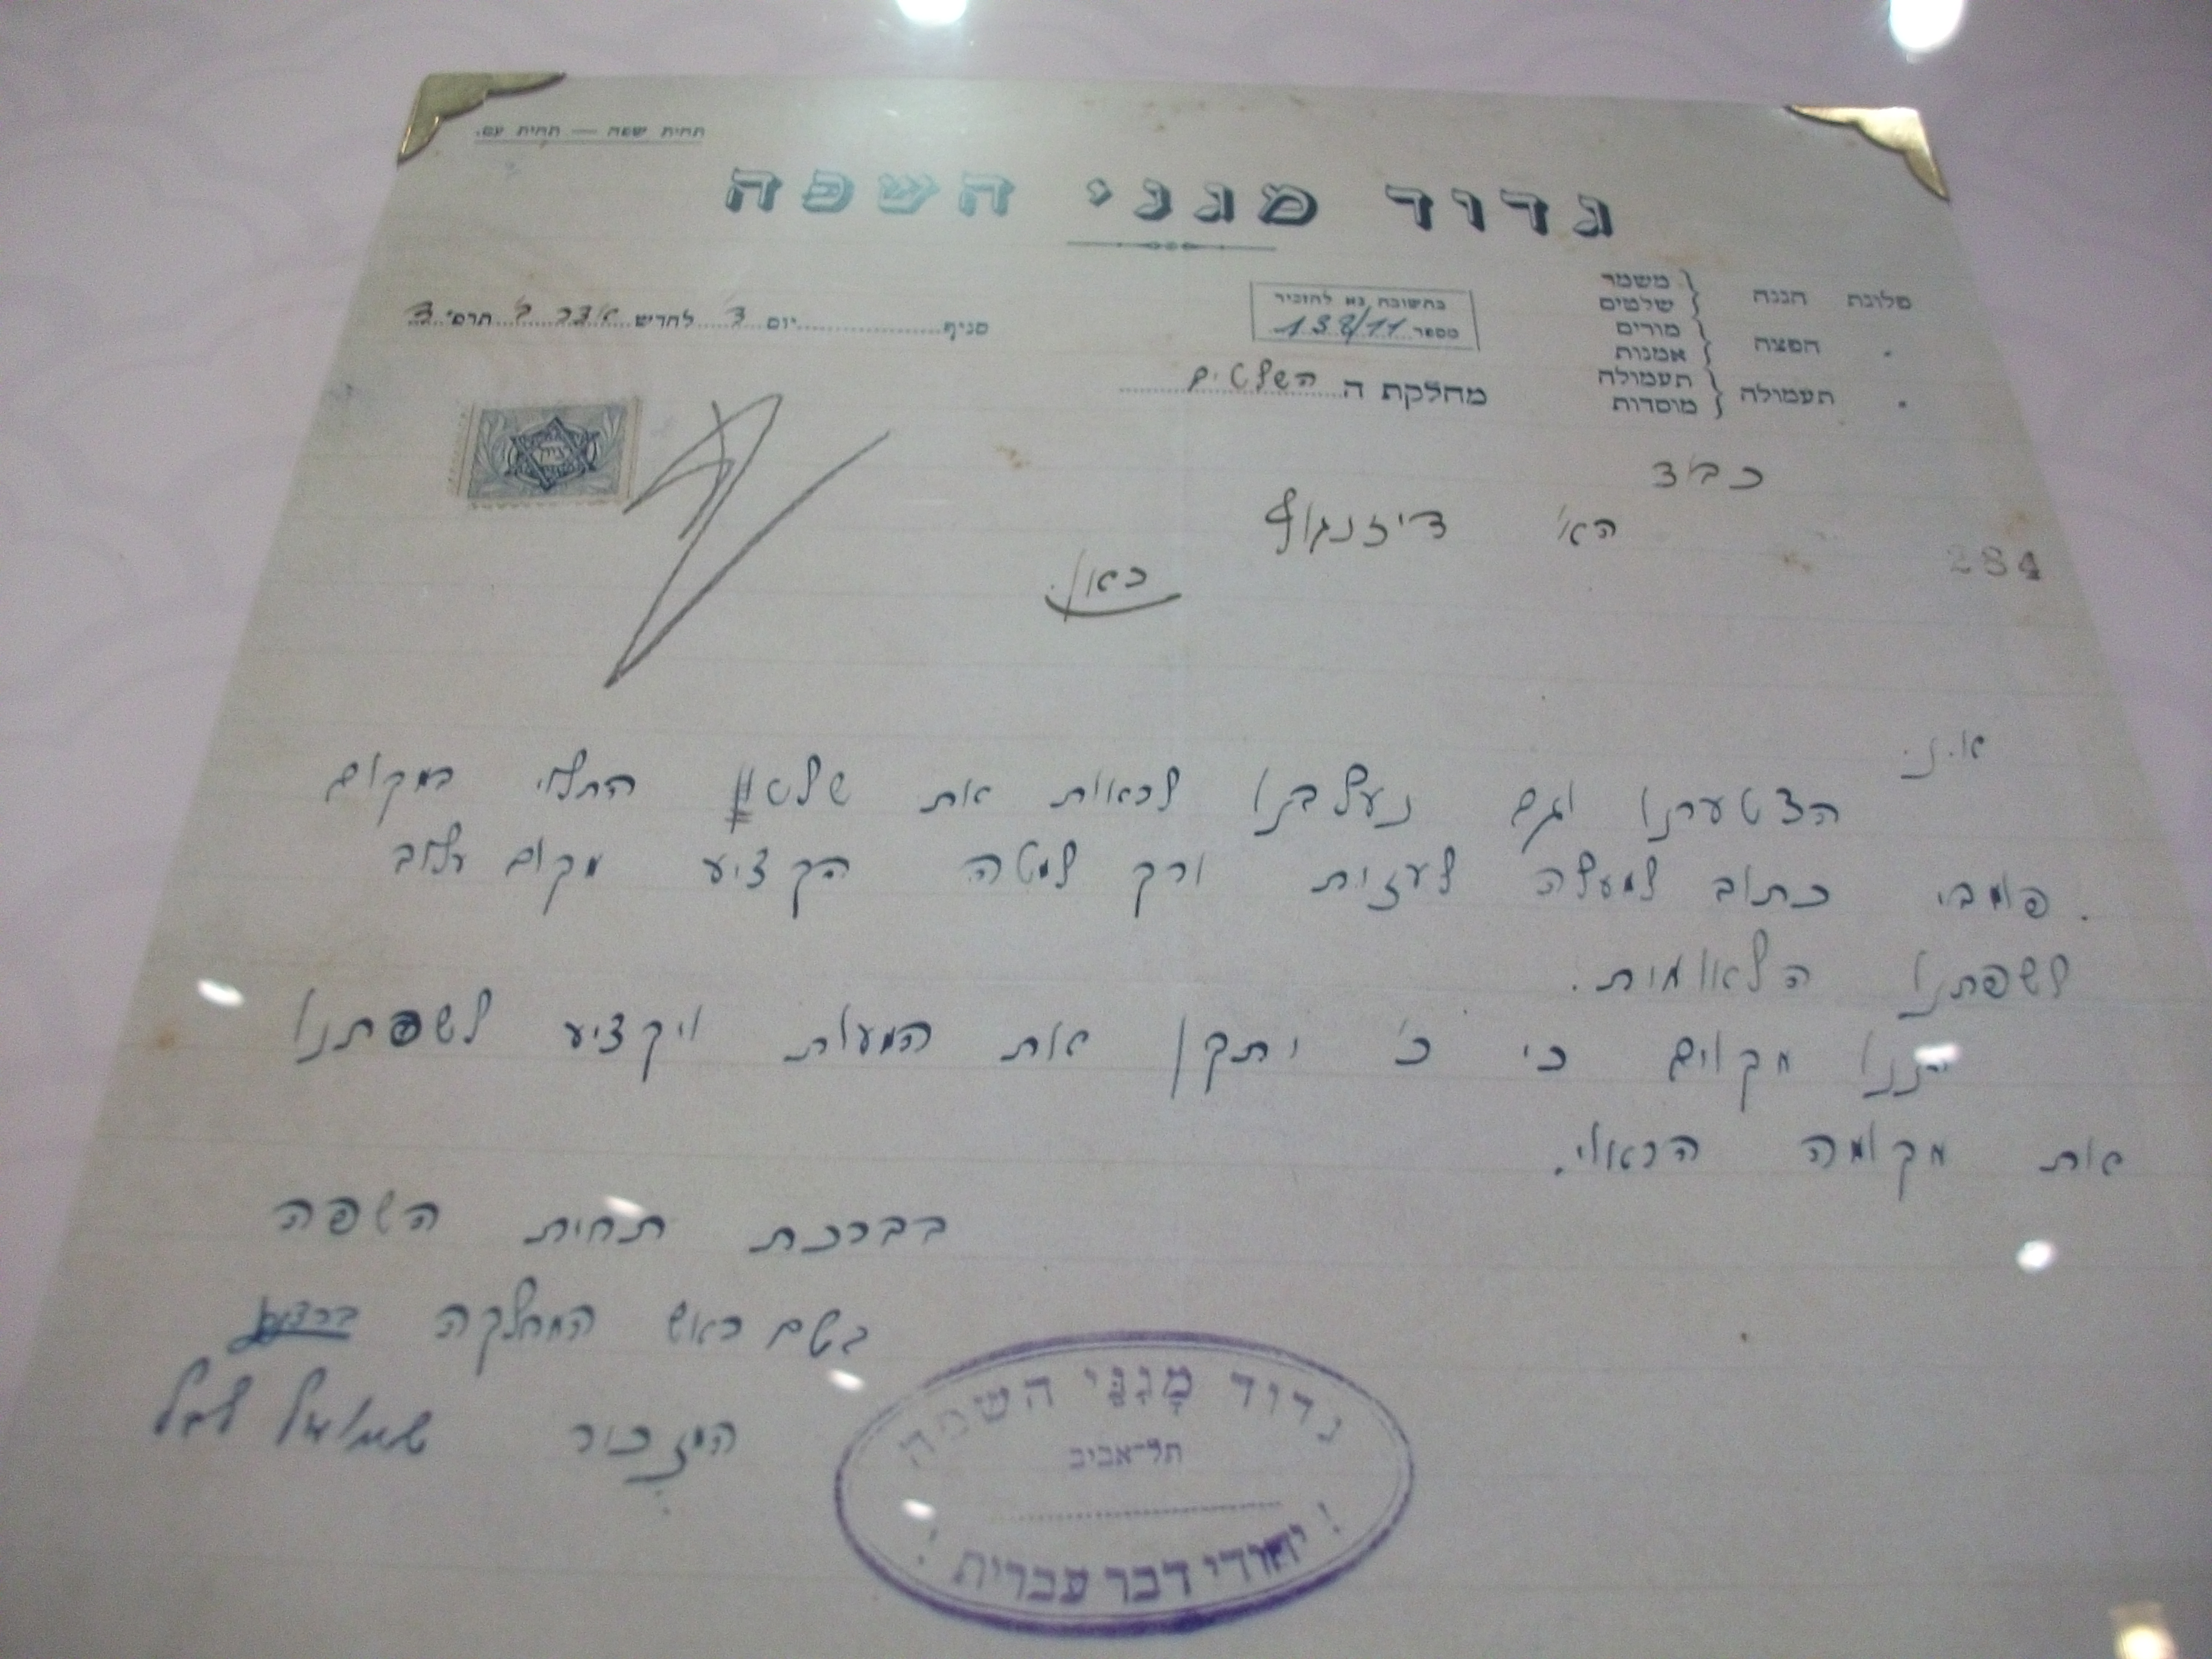 תחית שפה — תחית עם.
גדוד מגני השפה
פלוגת הגנה { משמר
שלטים
" הפצה { מורים
אמנות
" תעמולה { תעמולה
מוסדות
בתשובה נא להזכיר
מספר 138/11
סניף יום ד' לחדש אדר ב' תרפ"ד
מחלקת ה השלטים
כבוד
הא' דיזנגוף
כאן.
284
א.נ.
הצטערנו וגם נעלבנו לראות את שלטו התלוי במקום
פומבי כתוב למעלה לעזית ורק למטה הקציע מקום עלוב
לשפתנו הלאומית.
הננו מקוים כי כ' יתקן את המעות ויקציע לשפתנו
את מקומה הראוי.
בברכת תחית השפה
בשם ראש המחלקה
המזכיר שמואל
גדוד מָגִנֵּי השפה
תל-אביב
! יהודי דבר עברית !